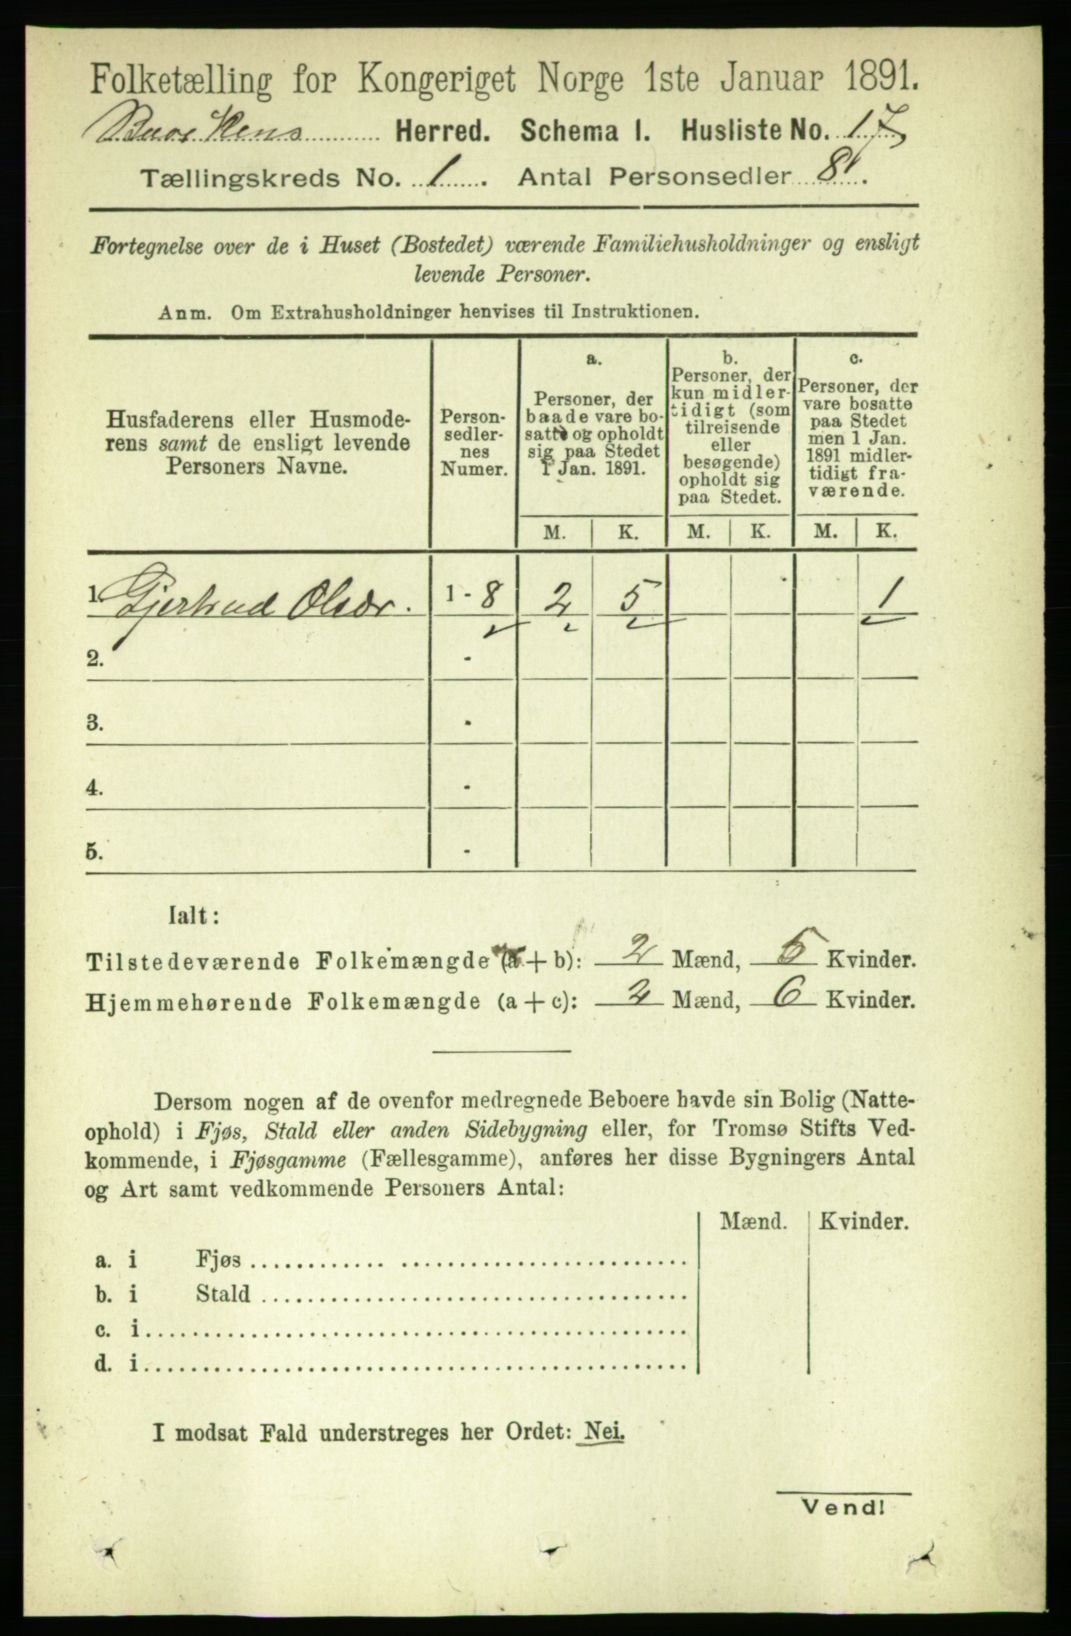 Folketælling for Kongeriget Norge 1ste Januar 1891.
Herred. Schema I. Husliste No. 17
Tællingskreds No. 1. Antal Personsedler 8.
Fortegnelse over de i Huset (Bostedet) værende Familiehusholdninger og ensligt
levende Personer.
Anm. Om Extrahusholdninger henvises til Instruktionen.
Husfaderens eller Husmode-
rens samt de ensligt levende
Personers Navne.
Person-
sedler-
nes
Numer.
a.
Personer, der
baade vare bo-
satte og opholdt
sig paa Stedet
1 Jan. 1891.
b.
Personer, der
kun midler-
tidigt (som
tilreisende
eller
besøgende)
opholdt sig
paa Stedet.
c.
Personer, der
vare bosatte
paa Stedet
men 1 Jan.
1891 midler-
tidigt fra-
værende.
M. K. M. K. M. K.
1. Gjertrud Olsdr. 1 - 8 2 5 1
2. -
3. -
4. -
5. -
Ialt:
Tilstedeværende Folkemængde (a + b): 2 Mænd, 5 Kvinder.
Hjemmehørende Folkemængde (a + c): 2 Mænd, 6 Kvinder.
Dersom nogen af de ovenfor medregnede Beboere havde sin Bolig (Natte-
ophold) i Fjøs, Stald eller anden Sidebygning eller, for Tromsø Stifts Ved-
kommende, i Fjøsgamme (Fællesgamme), anføres her disse Bygningers Antal
og Art samt vedkommende Personers Antal:
Mænd. Kvinder.
a. i Fjøs
b. i Stald
c. i
d. i
I modsat Fald understreges her Ordet: Nei.
Vend!